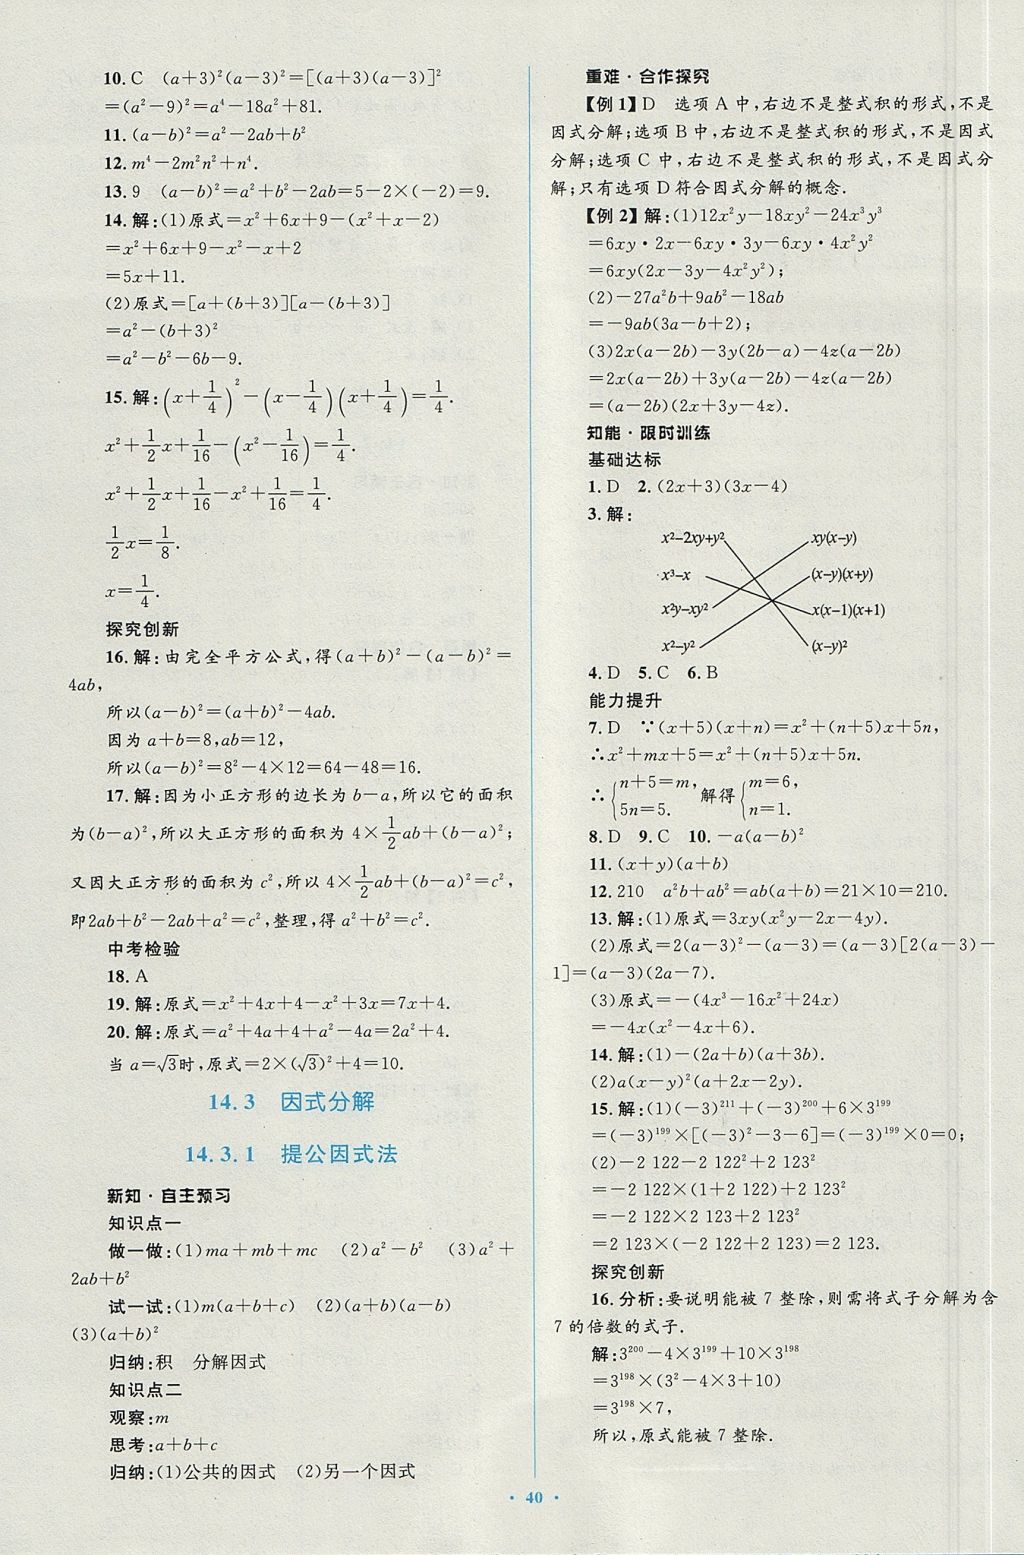 10. C　(a+3)²(a−3)²=[(a+3)(a−3)]²
=(a²−9)²=a⁴−18a²+81.
11. (a−b)²=a²−2ab+b²
12. m⁴−2m²n²+n⁴.
13. 9　(a−b)²=a²+b²−2ab=5−2×(−2)=9.
14. 解:(1)原式=x²+6x+9−(x²+x−2)
=x²+6x+9−x²−x+2
=5x+11.
(2)原式=[a+(b+3)][a−(b+3)]
=a²−(b+3)²
=a²−b²−6b−9.
15. 解:(x+1/4)²−(x−1/4)(x+1/4)=1/4.
x²+1/2x+1/16−(x²−1/16)=1/4.
x²+1/2x+1/16−x²+1/16=1/4.
1/2x=1/8.
x=1/4.
探究创新
16. 解:由完全平方公式,得(a+b)²−(a−b)²=
4ab,
所以(a−b)²=(a+b)²−4ab.
因为a+b=8,ab=12,
所以(a−b)²=8²−4×12=64−48=16.
17. 解:因为小正方形的边长为b−a,所以它的面积
为(b−a)²,所以大正方形的面积为4×1/2ab+(b−a)²;
又因大正方形的面积为c²,所以4×1/2ab+(b−a)²=c²,
即2ab+b²−2ab+a²=c²,整理,得a²+b²=c².
中考检验
18. A
19. 解:原式=x²+4x+4−x²+3x=7x+4.
20. 解:原式=a²+4a+4+a²−4a=2a²+4.
当a=√3时,原式=2×(√3)²+4=10.
14.3　因式分解
14.3.1　提公因式法
新知·自主预习
知识点一
做一做:(1)ma+mb+mc　(2)a²−b²　(3)a²+
2ab+b²
试一试:(1)m(a+b+c)　(2)(a+b)(a−b)
(3)(a+b)²
归纳:积　分解因式
知识点二
观察:m
思考:a+b+c
归纳:(1)公共的因式　(2)另一个因式
重难·合作探究
【例1】D　选项A中,右边不是整式积的形式,不是
因式分解;选项B中,右边不是整式积的形式,不是因式
分解;选项C中,右边不是整式积的形式,不是因式分
解;只有选项D符合因式分解的概念.
【例2】解:(1)12x²y−18xy²−24x³y³
=6xy·2x−6xy·3y−6xy·4x²y²
=6xy(2x−3y−4x²y²);
(2)−27a²b+9ab²−18ab
=−9ab(3a−b+2);
(3)2x(a−2b)−3y(2b−a)−4z(a−2b)
=2x(a−2b)+3y(a−2b)−4z(a−2b)
=(a−2b)(2x+3y−4z).
知能·限时训练
基础达标
1. D　2. (2x+3)(3x−4)
3. 解:
x²−2xy+y²　xy(x−y)
x³−x　(x−y)(x+y)
x²y−xy²　x(x−1)(x+1)
x²−y²　(x−y)²
4. D　5. C　6. B
能力提升
7. D　∵(x+5)(x+n)=x²+(n+5)x+5n,
∴x²+mx+5=x²+(n+5)x+5n.
∴{n+5=m, 5n=5. 解得{m=6, n=1.
8. D　9. C　10. −a(a−b)²
11. (x+y)(a+b)
12. 210　a²b+ab²=ab(a+b)=21×10=210.
13. 解:(1)原式=3xy(x²y−2x−4y).
(2)原式=2(a−3)²−(a−3)=(a−3)[2(a−3)−
1]=(a−3)(2a−7).
(3)原式=−(4x³−16x²+24x)
=−4x(x²−4x+6).
14. 解:(1)−(2a+b)(a+3b).
(2)a(x−y)²(2a+2x−2y).
15. 解:(1)(−3)²¹¹+(−3)²⁰⁰+6×3¹⁹⁹
=(−3)¹⁹⁹×[(−3)²−3−6]=(−3)¹⁹⁹×0=0;
(2)−2 122−2 122²+2 123²
=−2 122×(1+2 122)+2 123²
=−2 122×2 123+2 123²
=2 123×(−2 122+2 123)=2 123.
探究创新
16. 分析:要说明能被7整除,则需将式子分解为含
7的倍数的式子.
解:3²⁰⁰−4×3¹⁹⁹+10×3¹⁹⁸
=3¹⁹⁸×(3²−4×3+10)
=3¹⁹⁸×7,
所以,原式能被7整除.
· 40 ·